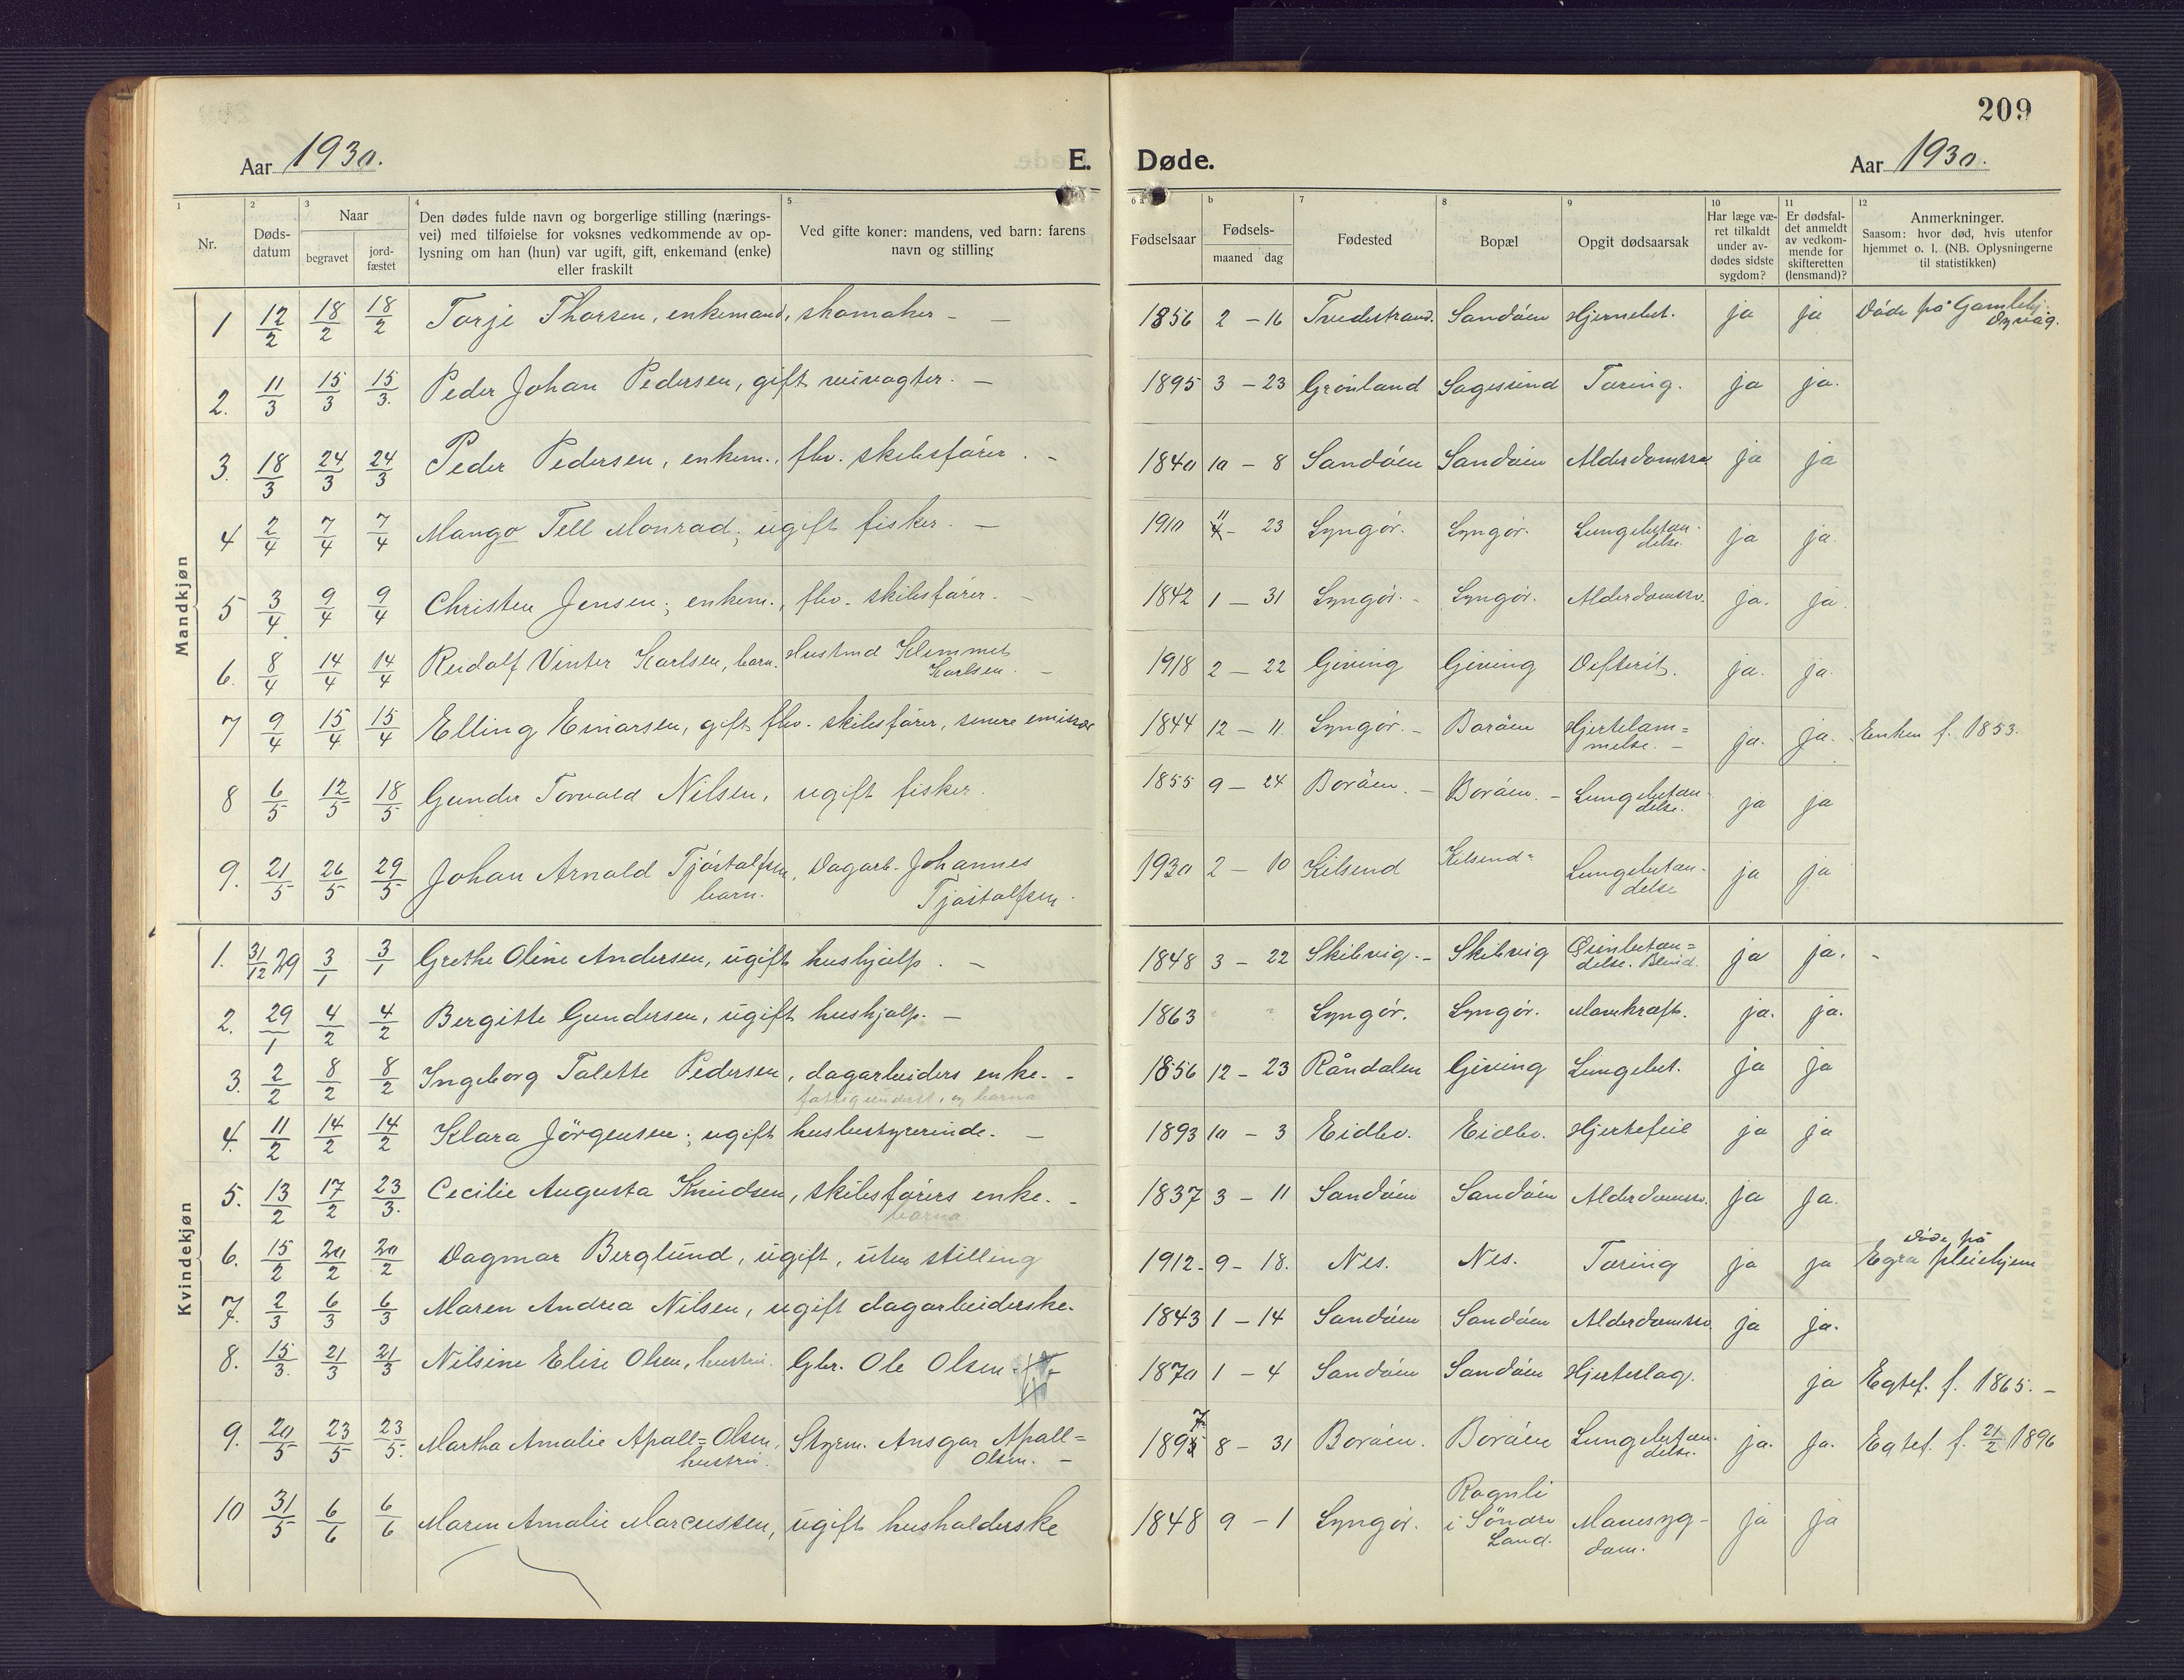 209
Aar 1930. E. Døde. Aar 1930.
1 2 3 4 5 6 a b 7 8 9 10 11 12
Nr. Døds-datum Naar begravet jord-fæstet Den dødes fulde navn og borgerlige stilling (nærings-vei) med tilføielse for voksnes vedkommende av op-lysning om han (hun) var ugift, gift, enkemand (enke) eller fraskilt Ved gifte koner: mandens, ved barn: farens navn og stilling Fødselsaar Fødsels-maaned dag Fødested Bopæl Opgit dødsaarsak Har læge væ-ret tilkaldt under av-dødes sidste sygdom? Er dødsfal-det anmeldt av vedkom-mende for skifteretten (lensmand)? Anmerkninger. Saasom: hvor død, hvis utenfor hjemmet o. l. (NB. Oplysningerne til statistikken)
Mandkjøn
1 12/2 18/2 18/2 Torje Thorsen, enkemand, skomaker - - 1856 2 - 16 Tvedestrand. Sandøen Hjernebet. ja ja Døde på Gamlehj. Dyvåg.
2. 11/3 15/3 15/3. Peder Johan Pedersen, gift veivogter. - 1895 3 - 23 Grønland Sagesund Tæring. ja ja.
3. 18/3 24/3 24/3 Peder Pedersen, enkem., fhv. skibsfører. - 1840 10 - 8 Sandøen Sandøen Alderdomssv. ja ja
4 2/4 7/4 7/4 Mango Tell Monrad; ugift fisker. - 1910 11 - 23 Lyngør. Lyngør. Lungebetæn-delse. ja ja.
5 3/4 9/4 9/4 Christen Jensen; enkem., fhv. skibsfører. - 1842 1 - 31 Lyngør. - Lyngør. Alderdomssv. ja. ja.
6. 8/4 14/4 14/4 Rudolf Vinter Karlsen, barn. Hustmd Klemmet Karlsen. - 1918 2 - 22 Giving Giving Difterit. ja. ja.
7 9/4 15/4 15/4 Elling Einarsen, gift fhv. skibsfører, senere emissær 1844 12 - 11. Lyngør. - Borøen Hjertelam=melse. - ja. ja. Enken f. 1853.
8 6/5 12/5 18/5 Gunder Torvald Nilsen, ugift fisker. 1855 9 - 24 Borøen. - Borøen. - Lungebetæn-delse. ja ja
9. 21/5 26/5 29/5 Johan Arnold Tjøstolfsen, barn. Dagarb. Johannes Tjøstolfsen. 1930 2 - 10 Kilsund Kilsund Lungebetæn-delse ja ja
Kvindekjøn
1. 31/12 29 3/1 3/1 Grethe Oline Andersen, ugift hushjælp. - 1848 3 - 22 Skibvig. - Skibvig betæn=delse. Blind. ja ja. -
2. 29/1 4/2 4/2 Bergitte Gundersen, ugift hushjælp. - 1863 Lyngør. Lyngør. Mavekræft. ja. ja.
3. 2/2 8/2 8/2 Ingeborg Talette Pedersen, dagarbeiders enke. - 1856 12 - 23 Råndalen Giving Lungebet. ja ja
4. 11/2 14/2 14/2 Klara Jørgensen; ugift husbestyrerinde. - 1893 10 - 3 Eidbo. Eidbo. Hjertefeil ja ja
5. 13/2 17/2 23/3. Cecilie Augusta Knudsen, skibsførers enke. - 1837 3 - 11 Sandøen Sandøen Alderdomssv. ja ja.
6. 15/2 20/2 20/2 Dagmar Berglund, ugift, uten stilling 1912. 9 - 18. Nes. Nes. Tæring ja ja Døde på Egra pleiehjem
7. 2/3 6/3 6/3 Maren Andrea Nilsen, ugift dagarbeiderske. 1843 1 - 14 Sandøen Sandøen Alderdomssv. ja ja.
8. 15/3. 21/3 21/3 Nilsine Elise Olsen, hustru. Gbr. Ole Olsen 1870 1 - 4 Sandøen Sandøen Hjerteslag. ja Egtef. f. 1865. -
9. 20/5 23/5 23/5. Martha Amalie Apall=Olsen, hustru. Styrm. Ansgar Apall=Olsen. - 1897 8 - 31 Borøen. Borøen Lungebetæn-delse. ja. ja. Egtef. f. 21/2 1896
10 31/5 6/6 6/6 Maren Amalie Marcussen, ugift husholderske 1848 9 - 1 Lyngør. Rognli i Søndre Land. Mavesyg-dom. ja ja